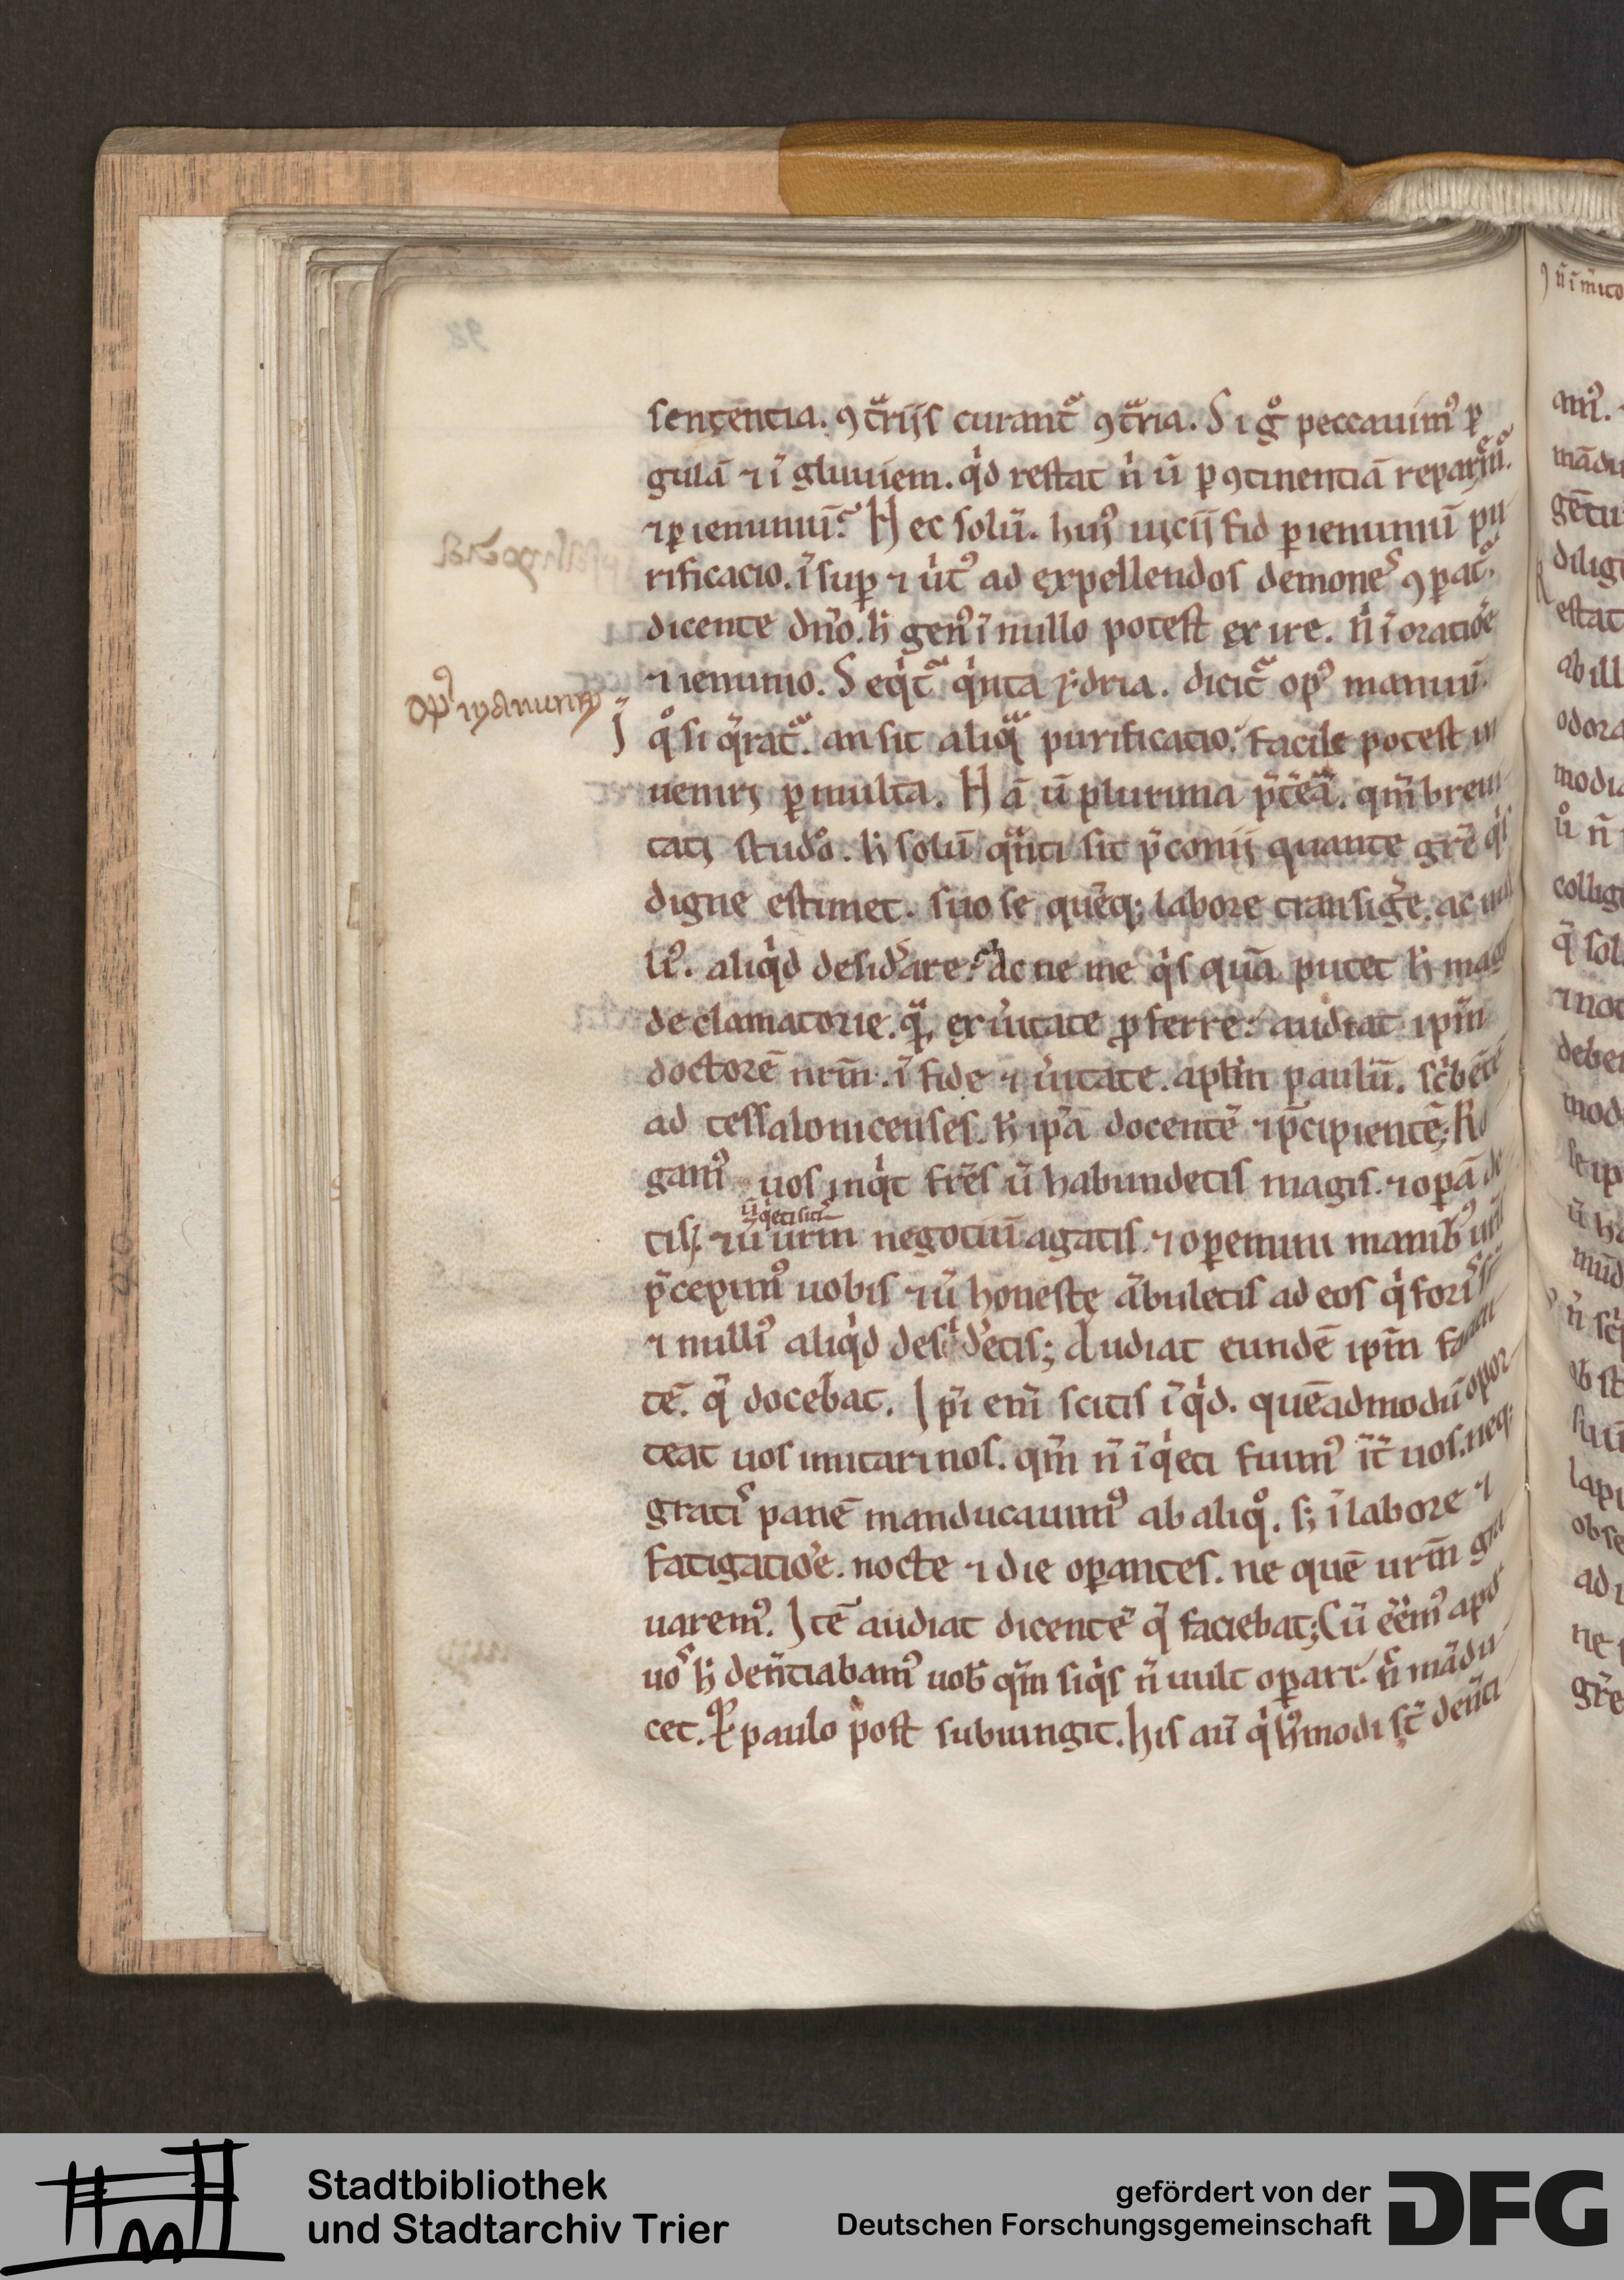 sentencia. ꝯt̃rijs curant̃ ꝯt̃ria. Si gͦ peccauimꝰ ꝑ
gulā ⁊ ĩ gluuiem. qͥd restat ñ ũ ꝑ ꝯtinentiā
⁊ ꝑ ieiuniũ. Hec solũ. huiꝰ uicij fid ꝑ ieiuniũ pu
rificacio. ĩsuꝑ ⁊ ad expellendos demones ꝯꝑat̃
dicente dño. h̃ genꝰ ĩ nullo potest exire. ñ ĩ oratiõe
⁊ ieiunio. Seqͥt̃ qͥnta ydria. dicit̃ opꝰ manuũ
opꝰ manuum
qͦ si q̃rat̃. an sit aliq̃ purificacio. facile potest in
ueniri ꝑ multa. Hā ũ plurima p̃t̃eā. qm̃ breui
tati studeo. h̃ solũ qñti sit p̃conij quante gr̃e qͥs
digne estimet. suo se quēq; labore transig̃e. ac nul
liꝰ. aliqͥd desid̃are. Ac ne me qͥs quā putet h̃ magis
declamatorie. q̃ ex ũitate ꝓferre. audiat ipm̃
doctorē nrm̃. ĩ fide ⁊ ũitate. apl̃m paulũ. sc̃bētē
ad tessalonicenses. h̃ ipā docentē ⁊ p̃cipientē; Ro
gamꝰ uos inqͥt fr̃es ũ habundetis magis. ⁊ oꝑā de
ũ qͥeti sitis
tis. ⁊ ũ urm̃ negociũ agatis. ⁊ oꝑemini manibꝰ ur̃is
p̃cepimꝰ uobis ⁊ ũ honeste ābuletis ad eos qͥ foris sũ
⁊ nulliꝰ aliqͥd desid̃etis; Audiat eundē ipm̃ facien
tē. q̃ docebat. Ip̃i eni scitis ĩqͥd. quēadmodũ opor
teat uos imitari nos. qm̃ ñ ĩqͥeti fuimꝰ ĩt̃ uos. neq;
gratis panē manducauimꝰ ab aliqͦ. s; ĩ labore ⁊
fatigatiõe. nocte ⁊ die oꝑantes. ne quē urm̃ gra
uaremꝰ. Itē audiat dicentē q̃ faciebat; Cũ eēmꝰ apd
uos h̃ deñtiabamꝰ uob̃ qm̃ siqͥs ñ uult oꝑari. ñ mādu
cet. Et paulo post subiungit. his aũ qͥ hꝰmodi st̃ deñti
Stadtbibliothek
und Stadtarchiv Trier
gefördert von der
Deutschen Forschungsgemeinschaft
DFG